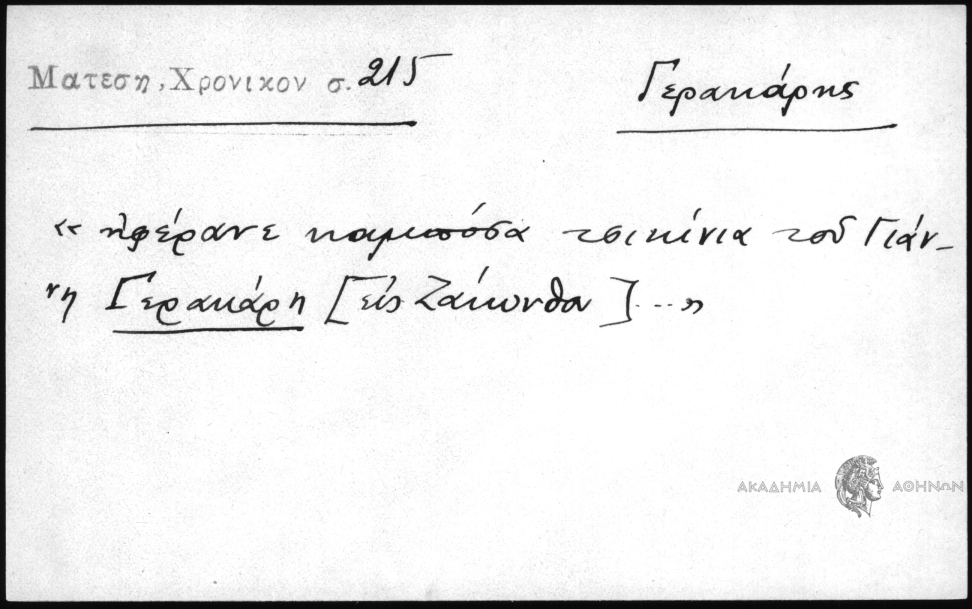 Ματεση, Χρονικον σ. 215
Γερακάρης
« ἠφέρανε καμπόσα τσικίνια τοῦ Γιάν-
νη Γερακάρη [εἰς Ζάκυνθον] ... »
ΑΚΑΔΗΜΙΑ ΑΘΗΝΩΝ